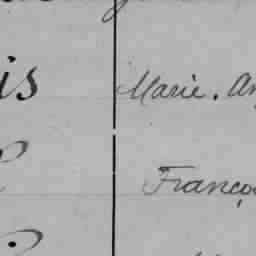 is Marie. An
Franço